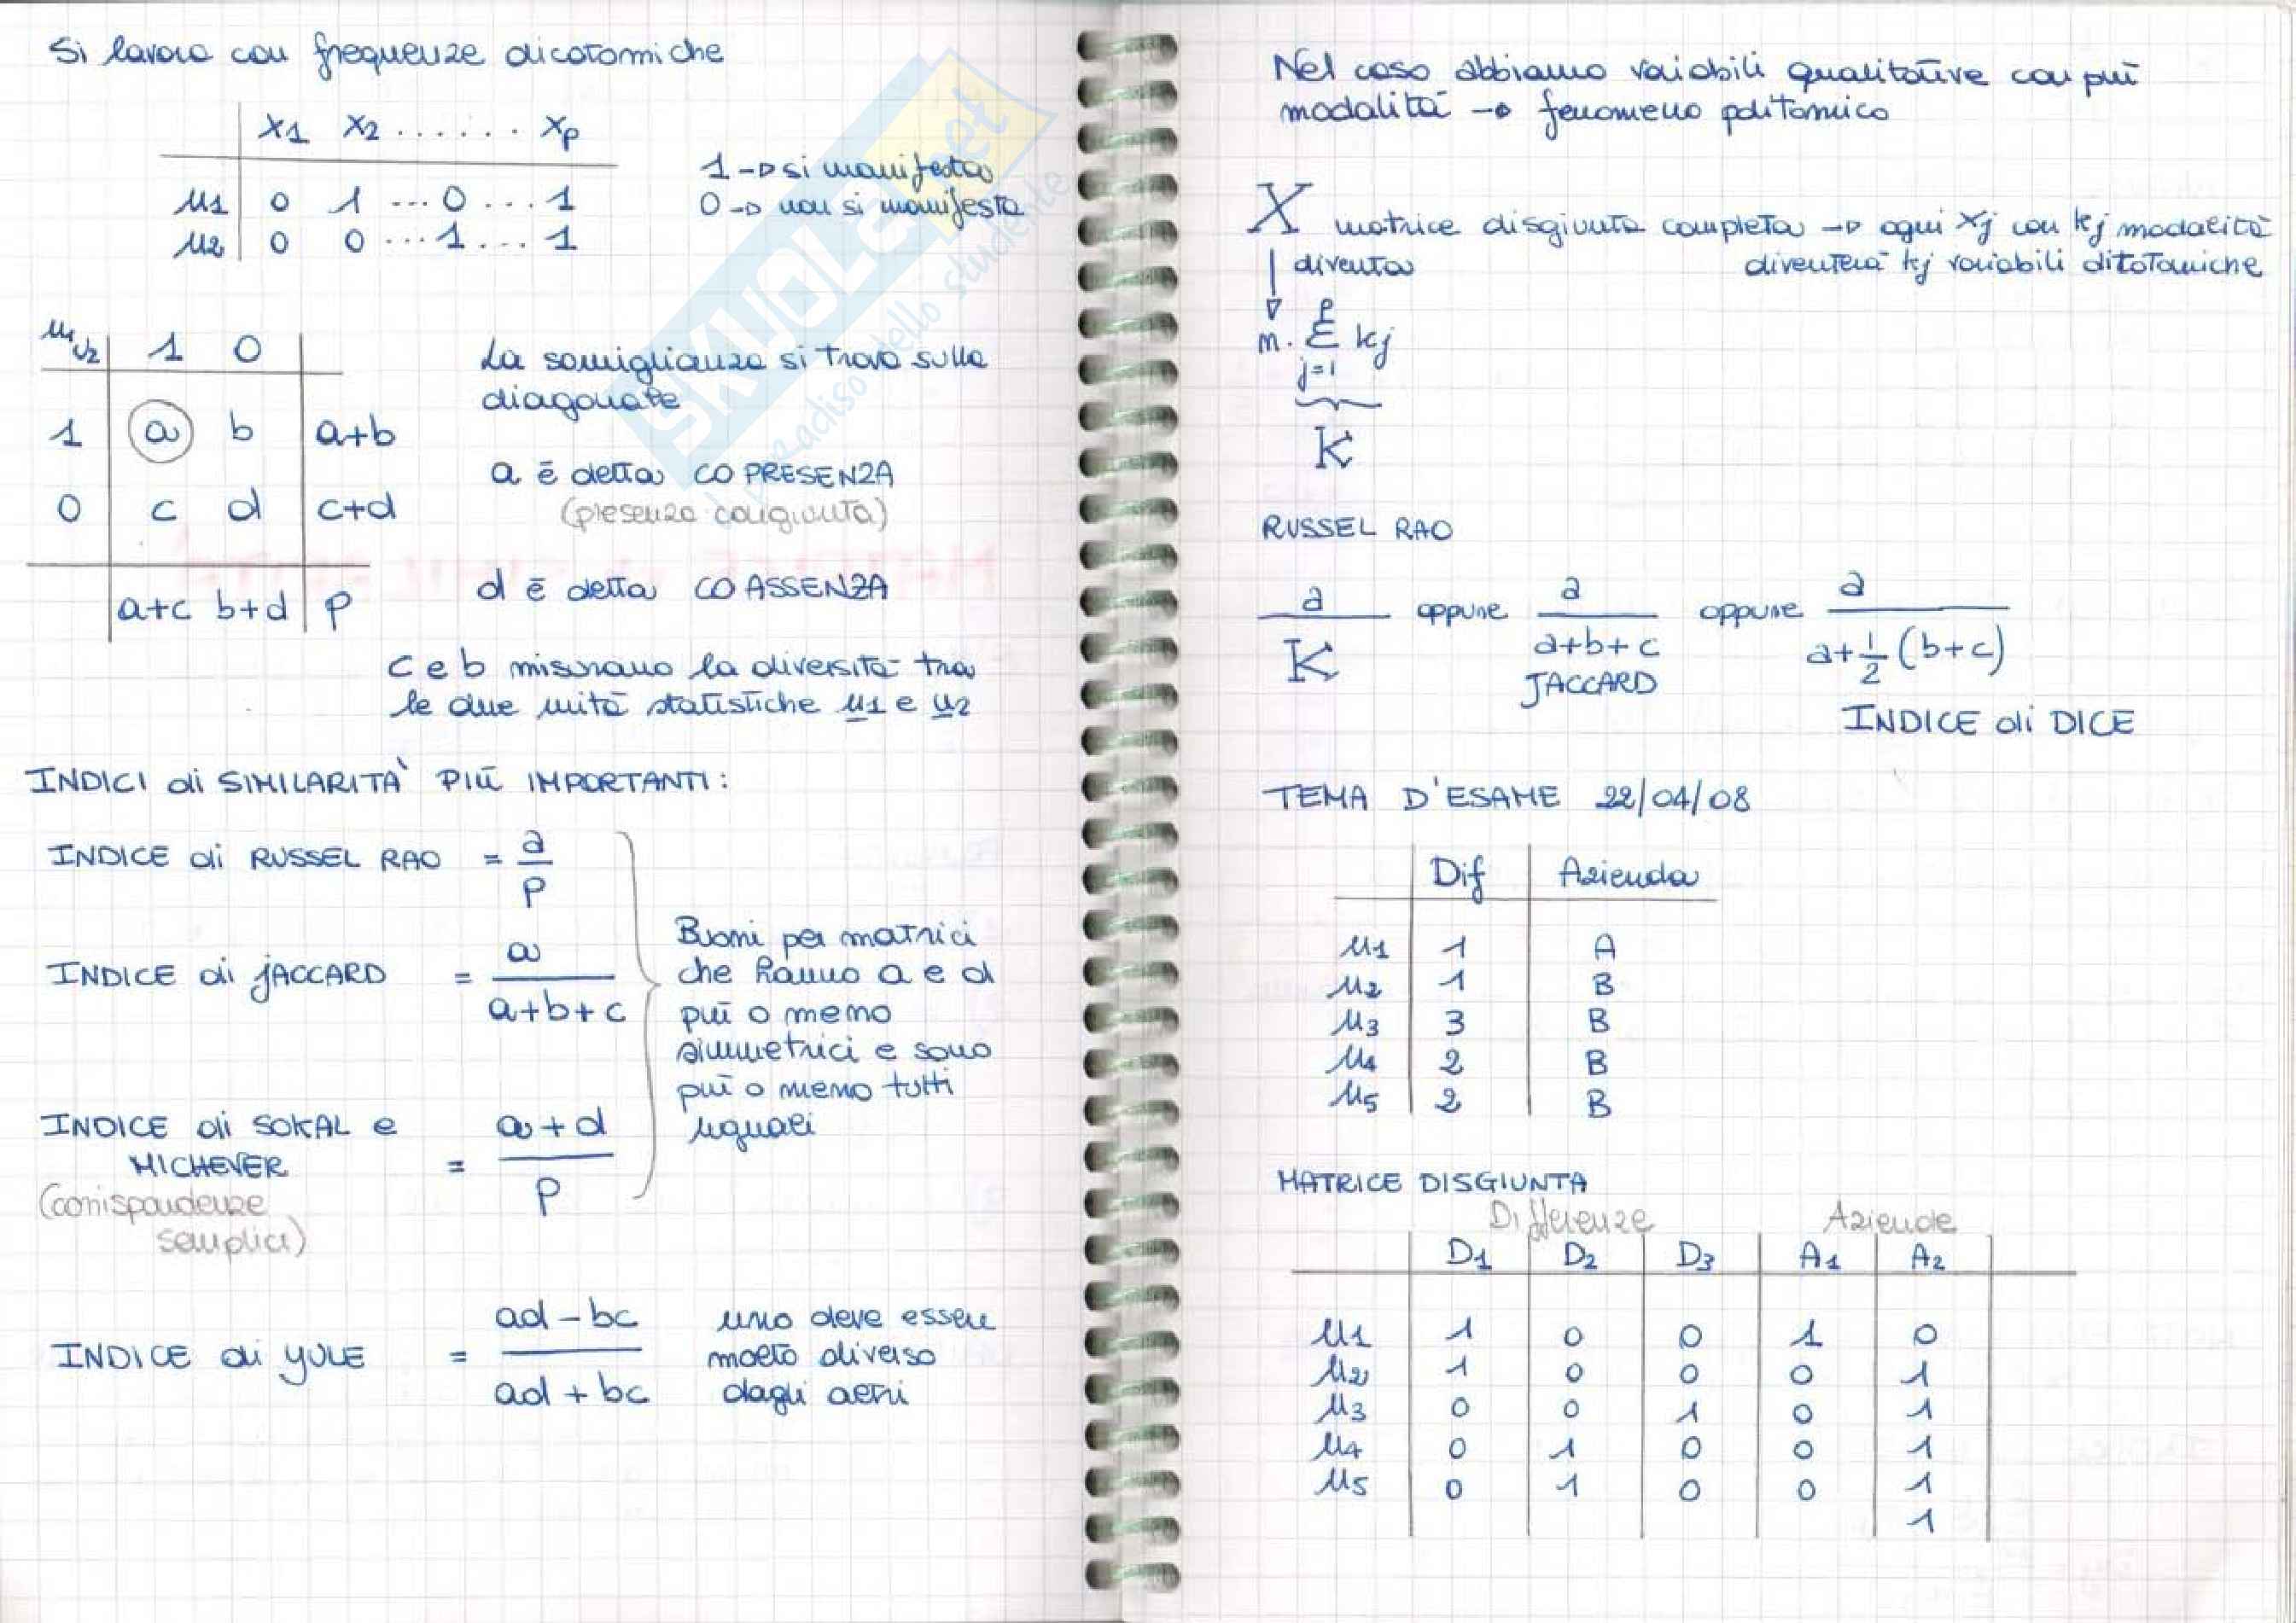 Si lavora con frequenze dicotomiche
X1 X2 ...... Xp
u1 0 1 ... 0 ... 1
u2 0 0 ... 1 ... 1
1 → si manifesta
0 → non si manifesta
u1 u2 1 0
1 a b a+b
0 c d c+d
a+c b+d p
La somiglianza si trova sulla
diagonale
a è detta CO PRESENZA
(presenza congiunta)
d è detta CO ASSENZA
c e b misurano la diversità tra
le due unità statistiche u1 e u2
INDICI di SIMILARITA' PIÙ IMPORTANTI:
INDICE di RUSSEL RAO = a / p
INDICE di jACCARD = a / a+b+c
INDICE di SOKAL e
MICHEVER = a+d / p
(corrispondenze
semplici)
Buoni per matrici
che hanno a e d
più o meno
simmetrici e sono
più o meno tutti
uguali
INDICE di YULE = ad-bc / ad+bc
uno deve essere
molto diverso
dagli altri
SKUOLA.net
il paradiso dello studente
Nel caso abbiamo variabili qualitative con più
modalità → fenomeno politomico
X matrice disgiunta completa → ogni xj con kj modalità
diventa diventerà kj variabili ditotomiche
m. Σ kj
p
j=1
K
RUSSEL RAO
a / K oppure a / a+b+c oppure a / a+1/2 (b+c)
JACCARD
INDICE di DICE
TEMA D'ESAME 22/04/08
Dif Azienda
u1 1 A
u2 1 B
u3 3 B
u4 2 B
u5 2 B
MATRICE DISGIUNTA
Differenze Aziende
D1 D2 D3 A1 A2
u1 1 0 0 1 0
u2 1 0 0 0 1
u3 0 0 1 0 1
u4 0 1 0 0 1
u5 0 1 0 0 1
1